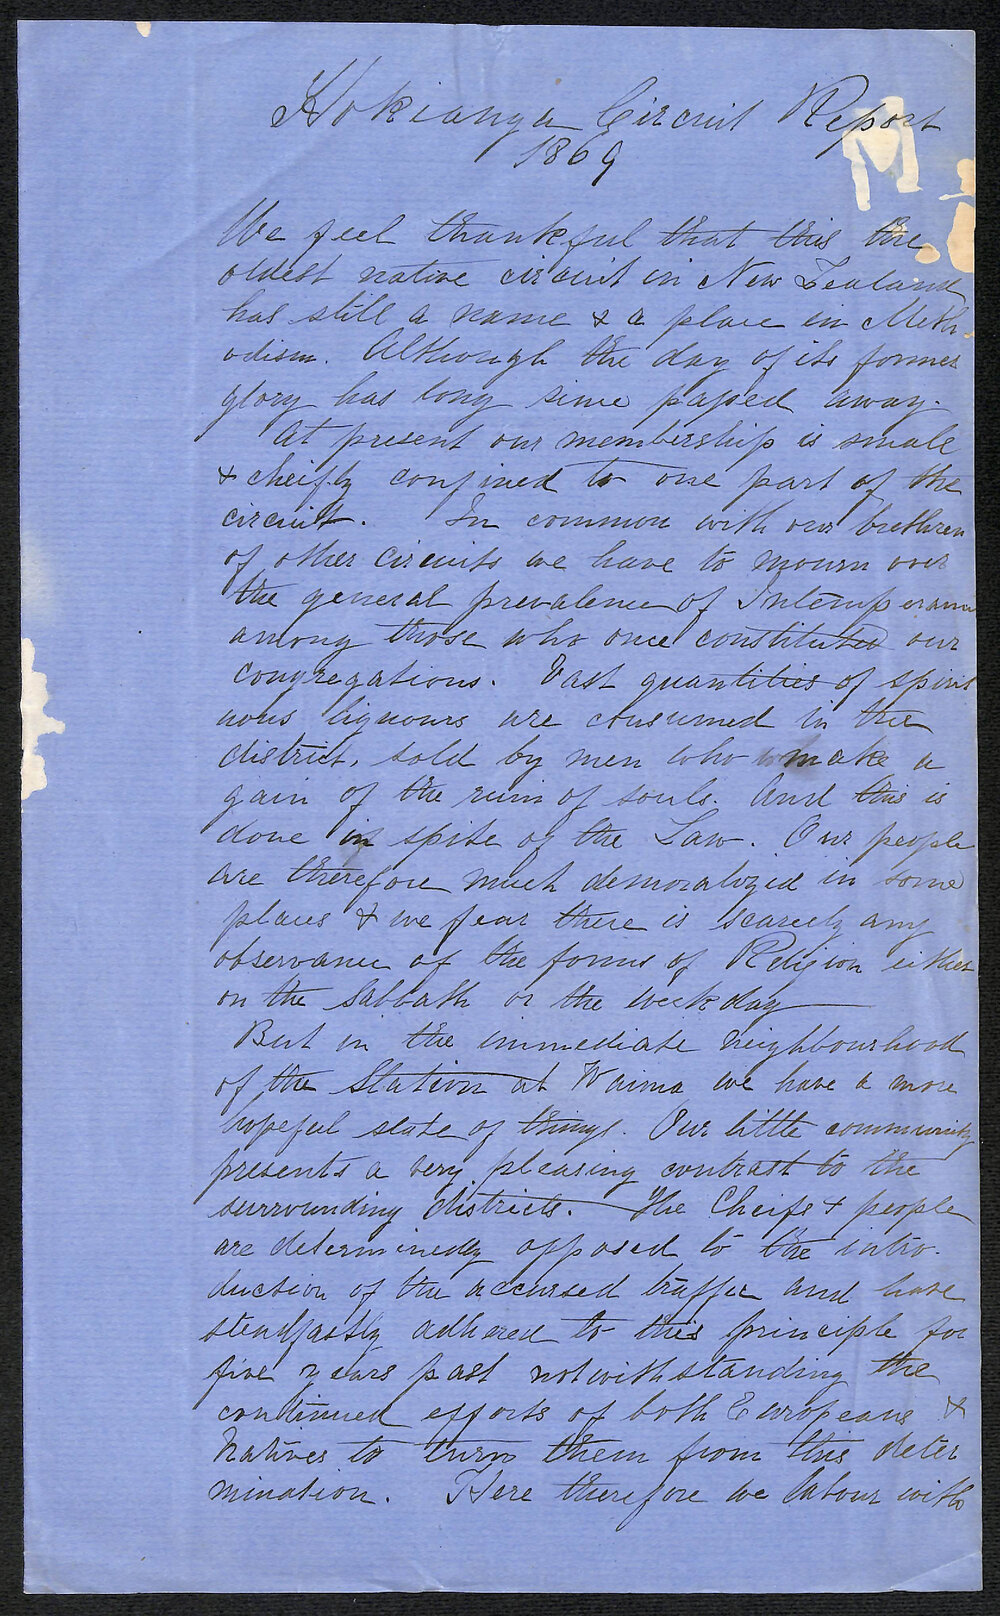 Hokianga Circuit Report
1869
We feel thankful that this the
oldest native circuit in New Zealand
has still a name & a place in Meth-
odism. Although the day of its former
glory has long since passed away.
At present our membership is small
& cheifly confined to one part of the
circuit. In common with our brethren
of other Circuits we have to mourn over
the general prevalence of Intemperance
among those who once constituted our
congregations. Vast quantities of spirit
uous liquours are consumed in the
district, sold by men who make a
gain of the ruin of souls. And this is
done in spite of the Law. Our people
are therefore much demoralized in some
places & we fear there is scarcely any
observance of the forms of Religion either
on the Sabbath or the weekday
But in the immediate neighbourhood
of the Station at Waima we have a more
hopeful state of things. Our little community
presents a very pleasing contrast to the
surrounding districts. The Cheifs & people
are determinedly opposed to the intro-
duction of the accursed traffic and have
steadfastly adhered to this principle for
five years past notwithstanding the
continued efforts of both Europeans &
Natives to turn them from this deter
mination. Here therefore we labour with